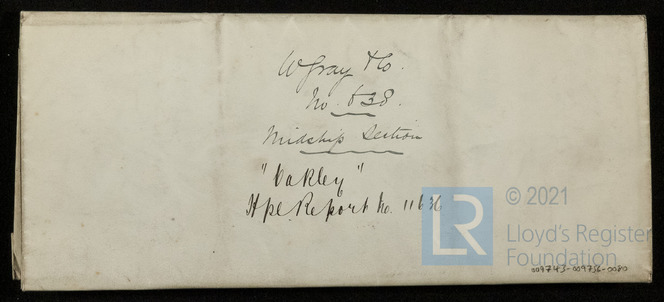 W Gray & Co.
No. 538.
Midship Section
"Oakley"
Hpl. Report No. 11636
LR
© 2021
Lloyd's Register
Foundation
009743-009756-0080